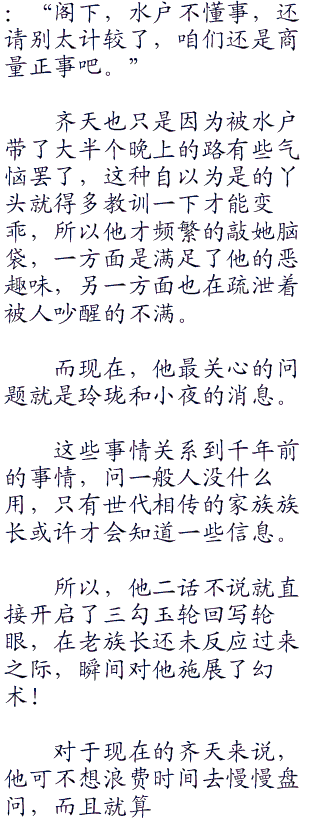 ：“阁下，水户不懂事，还
请别太计较了，咱们还是商
量正事吧。”
齐天也只是因为被水户
带了大半个晚上的路有些气
恼罢了，这种自以为是的丫
头就得多教训一下才能变
乖，所以他才频繁的敲她脑
袋，一方面是满足了他的恶
趣味，另一方面也在疏泄着
被人吵醒的不满。
而现在，他最关心的问
题就是玲珑和小夜的消息。
这些事情关系到千年前
的事情，问一般人没什么
用，只有世代相传的家族族
长或许才会知道一些信息。
所以，他二话不说就直
接开启了三勾玉轮回写轮
眼，在老族长还未反应过来
之际，瞬间对他施展了幻
术！
对于现在的齐天来说，
他可不想浪费时间去慢慢盘
问，而且就算